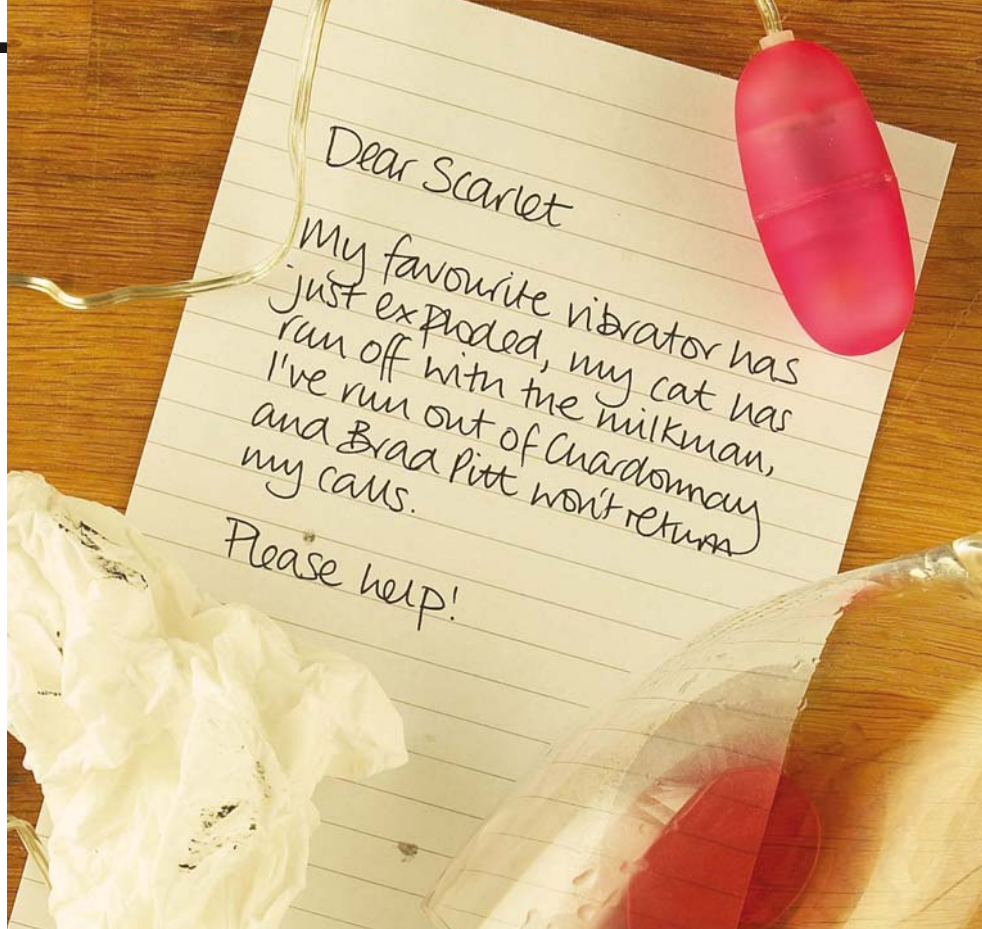 Dear Scarlet
My favourite vibrator has
just exploded, my cat has
run off with the milkman,
I've run out of Chardonnay
and Brad Pitt won't return
my calls.
Please help!